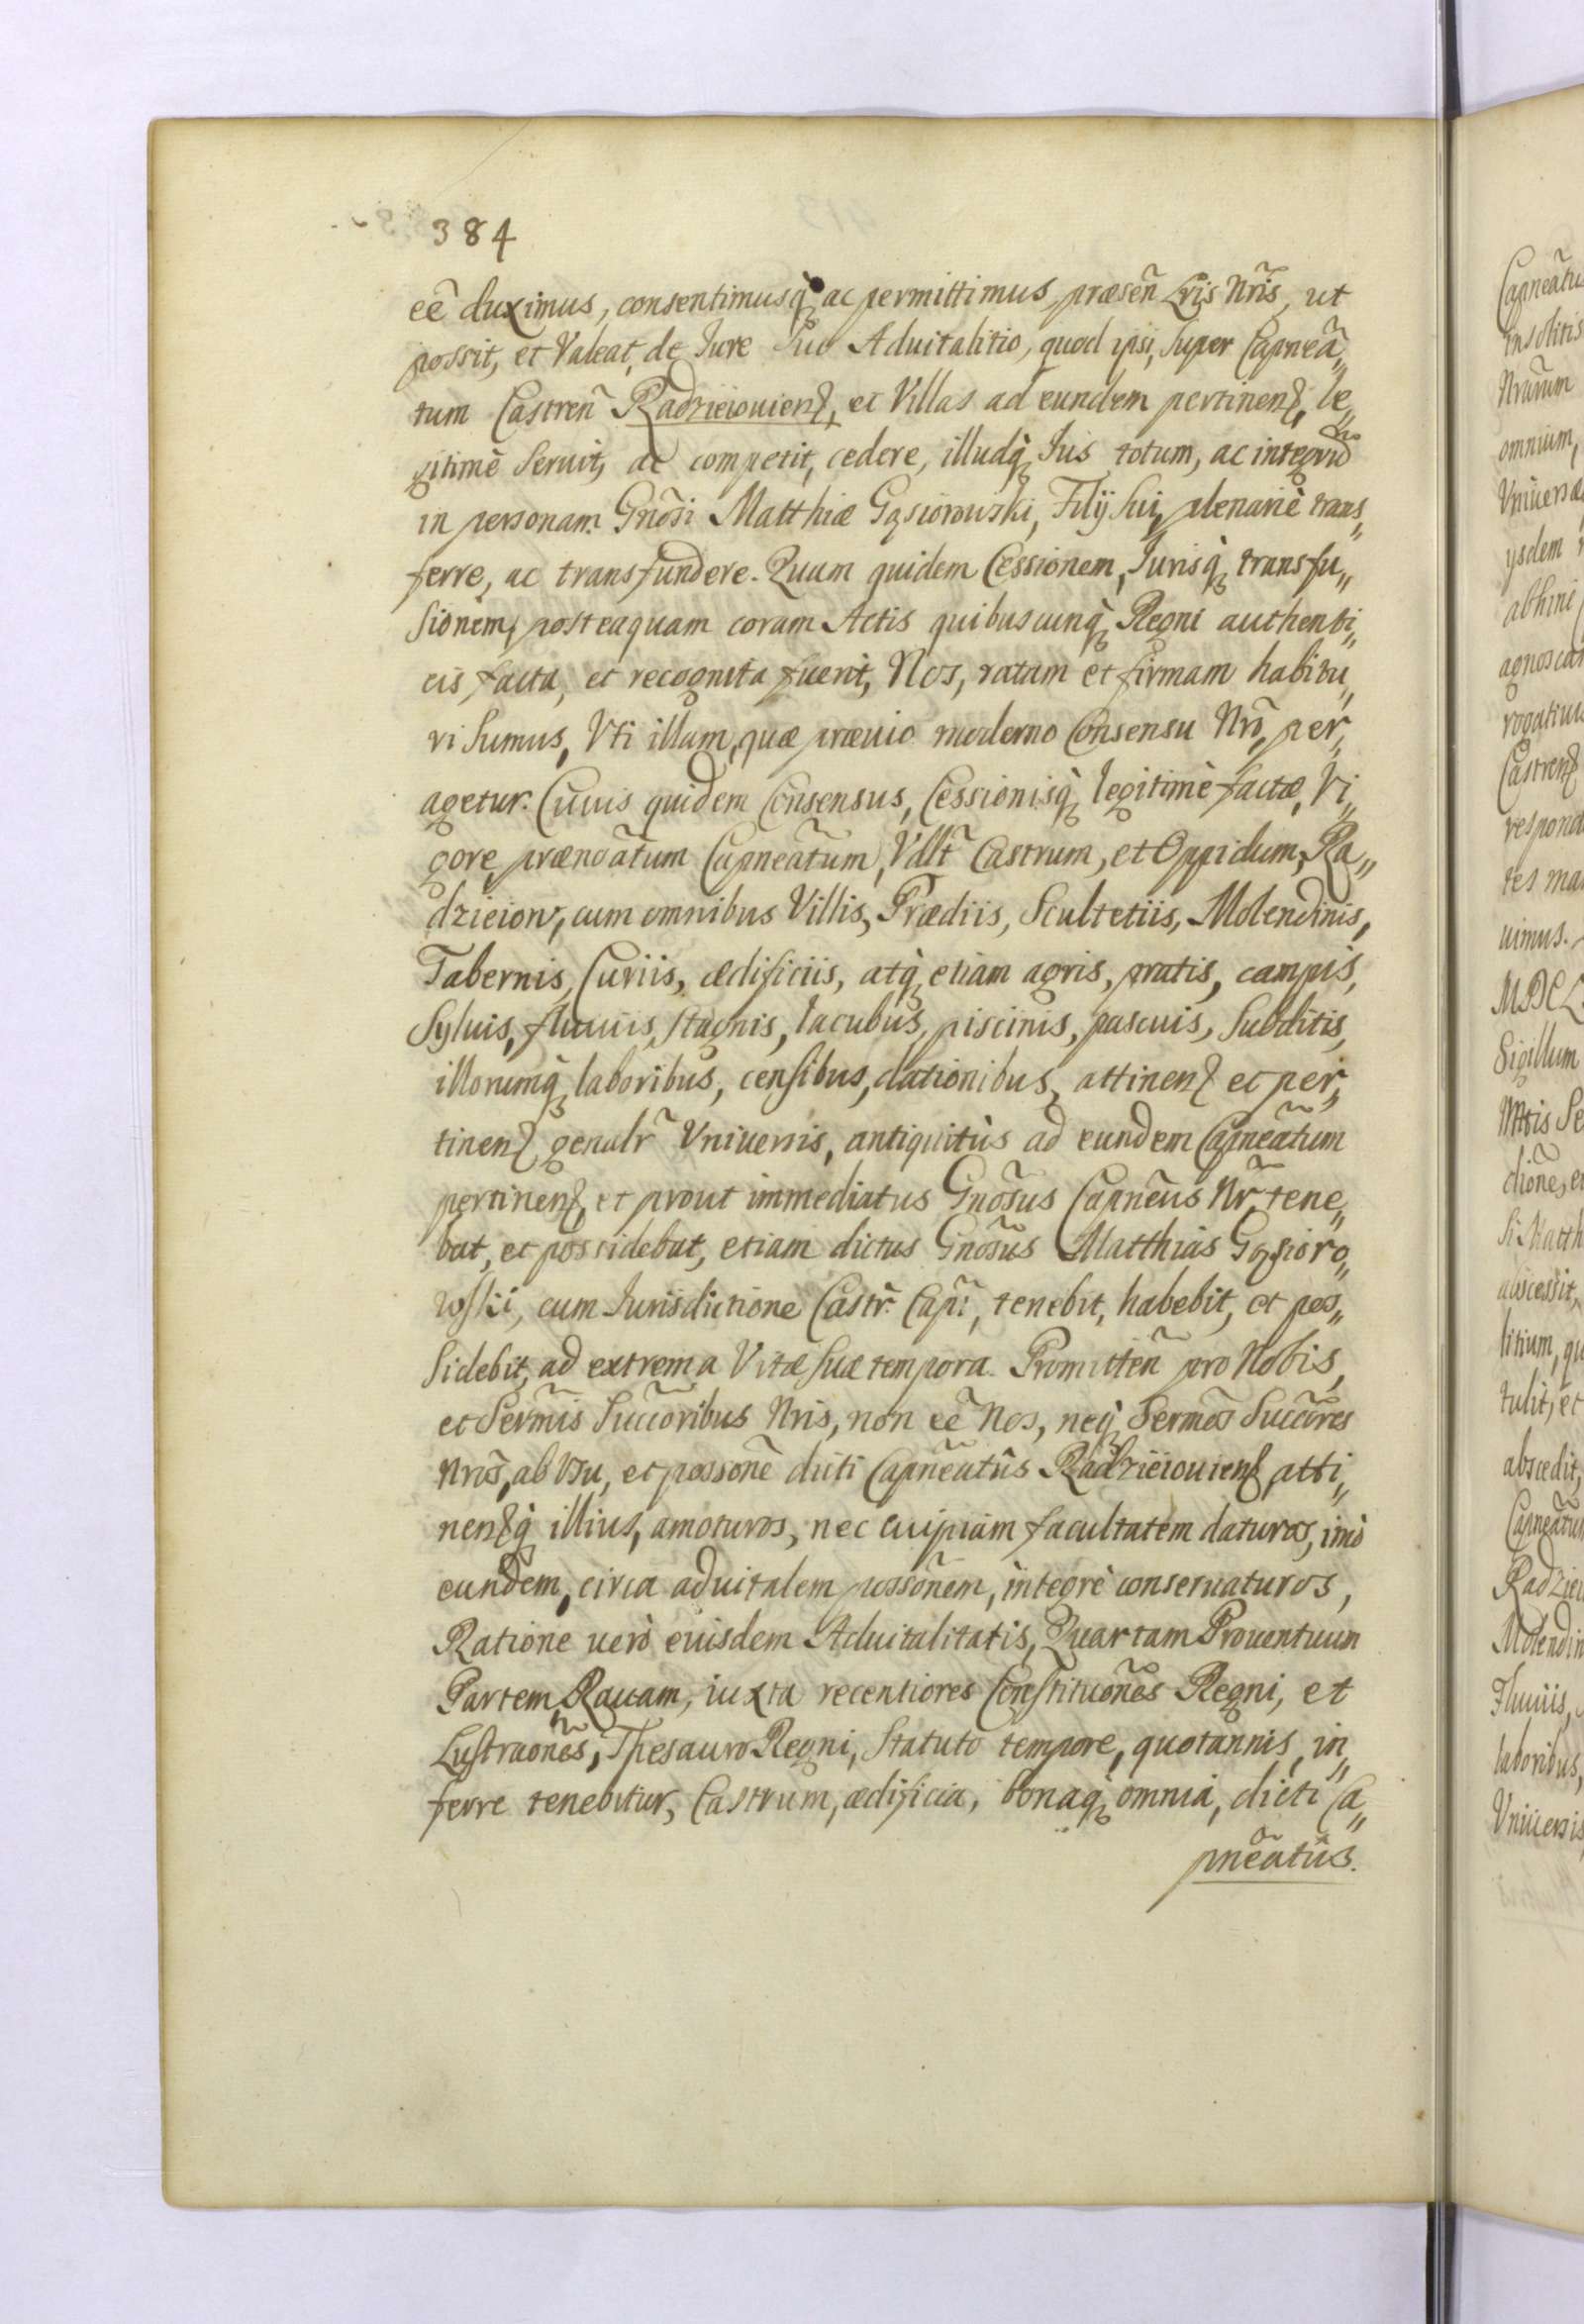 384
eẽ duximus, consentimusq̀ ac permittimus præseñ Lr̃is Nr̃is, ut
possit, et Valeat, de Iure Suo Aduitalitio, quod ipsi, super Capneã„
tum Castreñ Radzieiouienȝ, et Villas ad eundem pertinenȝ, le„
gitimè Seruit, ac competit, cedere, illudq̀ Ius totum, ac integrũ
in personam Gñosi Matthiæ Gąsiorowski, Filÿ sui, plenariè trans„
ferre, ac transfundere. Quam quidem Cessionem, Iurisq̀ transfu„
sionem, posteaquam coram Actis quibuscunq̀ Regni authenti„
cis facta, et recognita fuerit, Nos, ratam et firmam habitu„
ri sumus, Vti illam, quæ præuio moderno Consensu Nrõ, per„
agetur. Cuius quidem Consensus, Cessionisq̀ legitimè factæ, Vi„
gore, prænoãtum Capneãtum, Vdlt̃ Castrum, et Oppidum, Ra„
dzieiow, cum omnibus Villis, Prædiis, Scultetiis, Molendinis,
Tabernis, Curiis, ædificiis, atq̀ etiam agris, pratis, campis,
Syluis, fluuiis, stagnis, lacubus, piscinis, pascuis, Subditis,
illorumq̀ laboribus, censibus, dationibus, attinenȝ et per„
tinenȝ genalr̃ Vniuersis, antiquitùs ad eundem Capneãtum
pertinenȝ, et prout immediatus Gñosus Capneũs Nr̃, tene„
bat, et possidebat, etiam dictus Gnosũs Matthias Gąsioro„
wski, cum Iurisdictione Castr̃. Capñ:, tenebit, habebit, et pos„
sidebit, ad extrema Vitæ suæ tempora. Promitteñ pro Nobis,
et Serm̃is Succ̃oribus Nris, non eẽ Nos, neq̀ Sermõs Succ̃ores
Nrõs, ab Vsu, et possonẽ dicti Capneãtûs Radzieiouienȝ, atti„
nenȝq̀ illius, amoturos, nec cuipiam facultatem daturos, imò
eundem, circa aduitalem possonẽm, integrè conseruaturos,
Ratione uerò euisdem Aduitalitatis, Quartam Prouentuum
Partem, Rauam, iuxta recentiores Constituonẽs Regni, et
Lustraonẽs, Thesauro Regni, statuto tempore, quotannis, in„
ferre tenebitur, Castrum, ædificia, bonaq̀ omnia, dicti Ca„
pneãtûs.